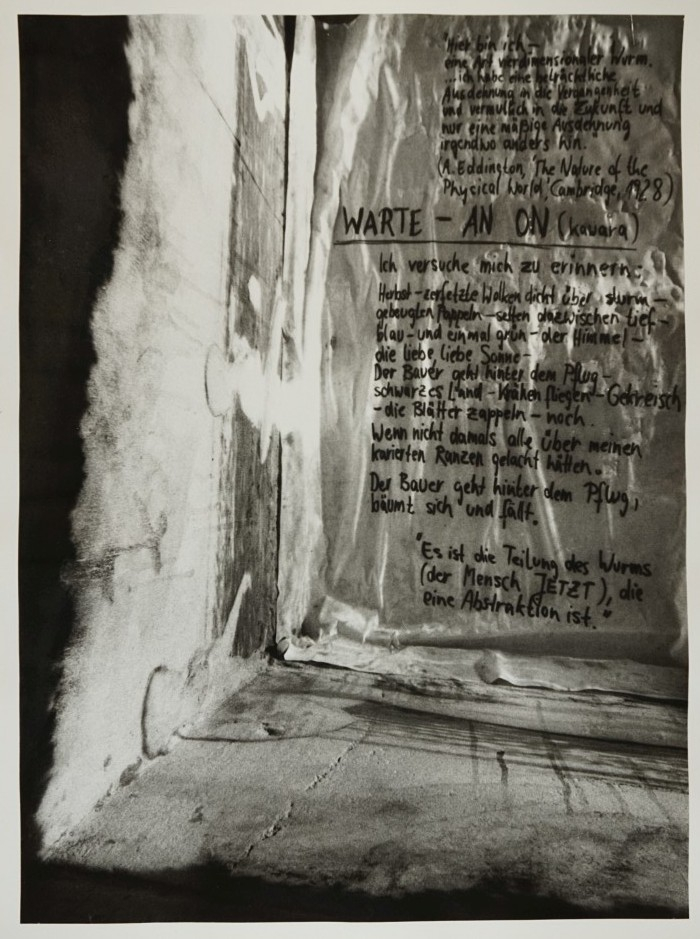 "Hier bin ich –
eine Art vierdimensionaler Wurm.
...ich habe eine beträchtliche
Ausdehnung in die Vergangenheit
und vermutlich in die Zukunft und
nur eine mäßige Ausdehnung
irgendwo anders hin.
(A. Eddington, 'The Nature of the
Physical World', Cambridge, 1928)
WARTE – AN ON (kawara)
Ich versuche mich zu erinnern:
Herbst – zerfetzte Wolken dicht über sturm –
gebeugten Pappeln – selten dazwischen tief –
blau – und einmal grün – der Himmel –
die liebe, liebe Sonne –
Der Bauer geht hinter dem Pflug –
schwarzes Land – Krähen fliegen – Gekreisch
– die Blätter zappeln – noch.
Wenn nicht damals alle über meinen
karierten Ranzen gelacht hätten.
Der Bauer geht hinter dem Pflug,
bäumt sich und fällt.
"Es ist die Teilung des Wurms
(der Mensch JETZT), die
eine Abstraktion ist."